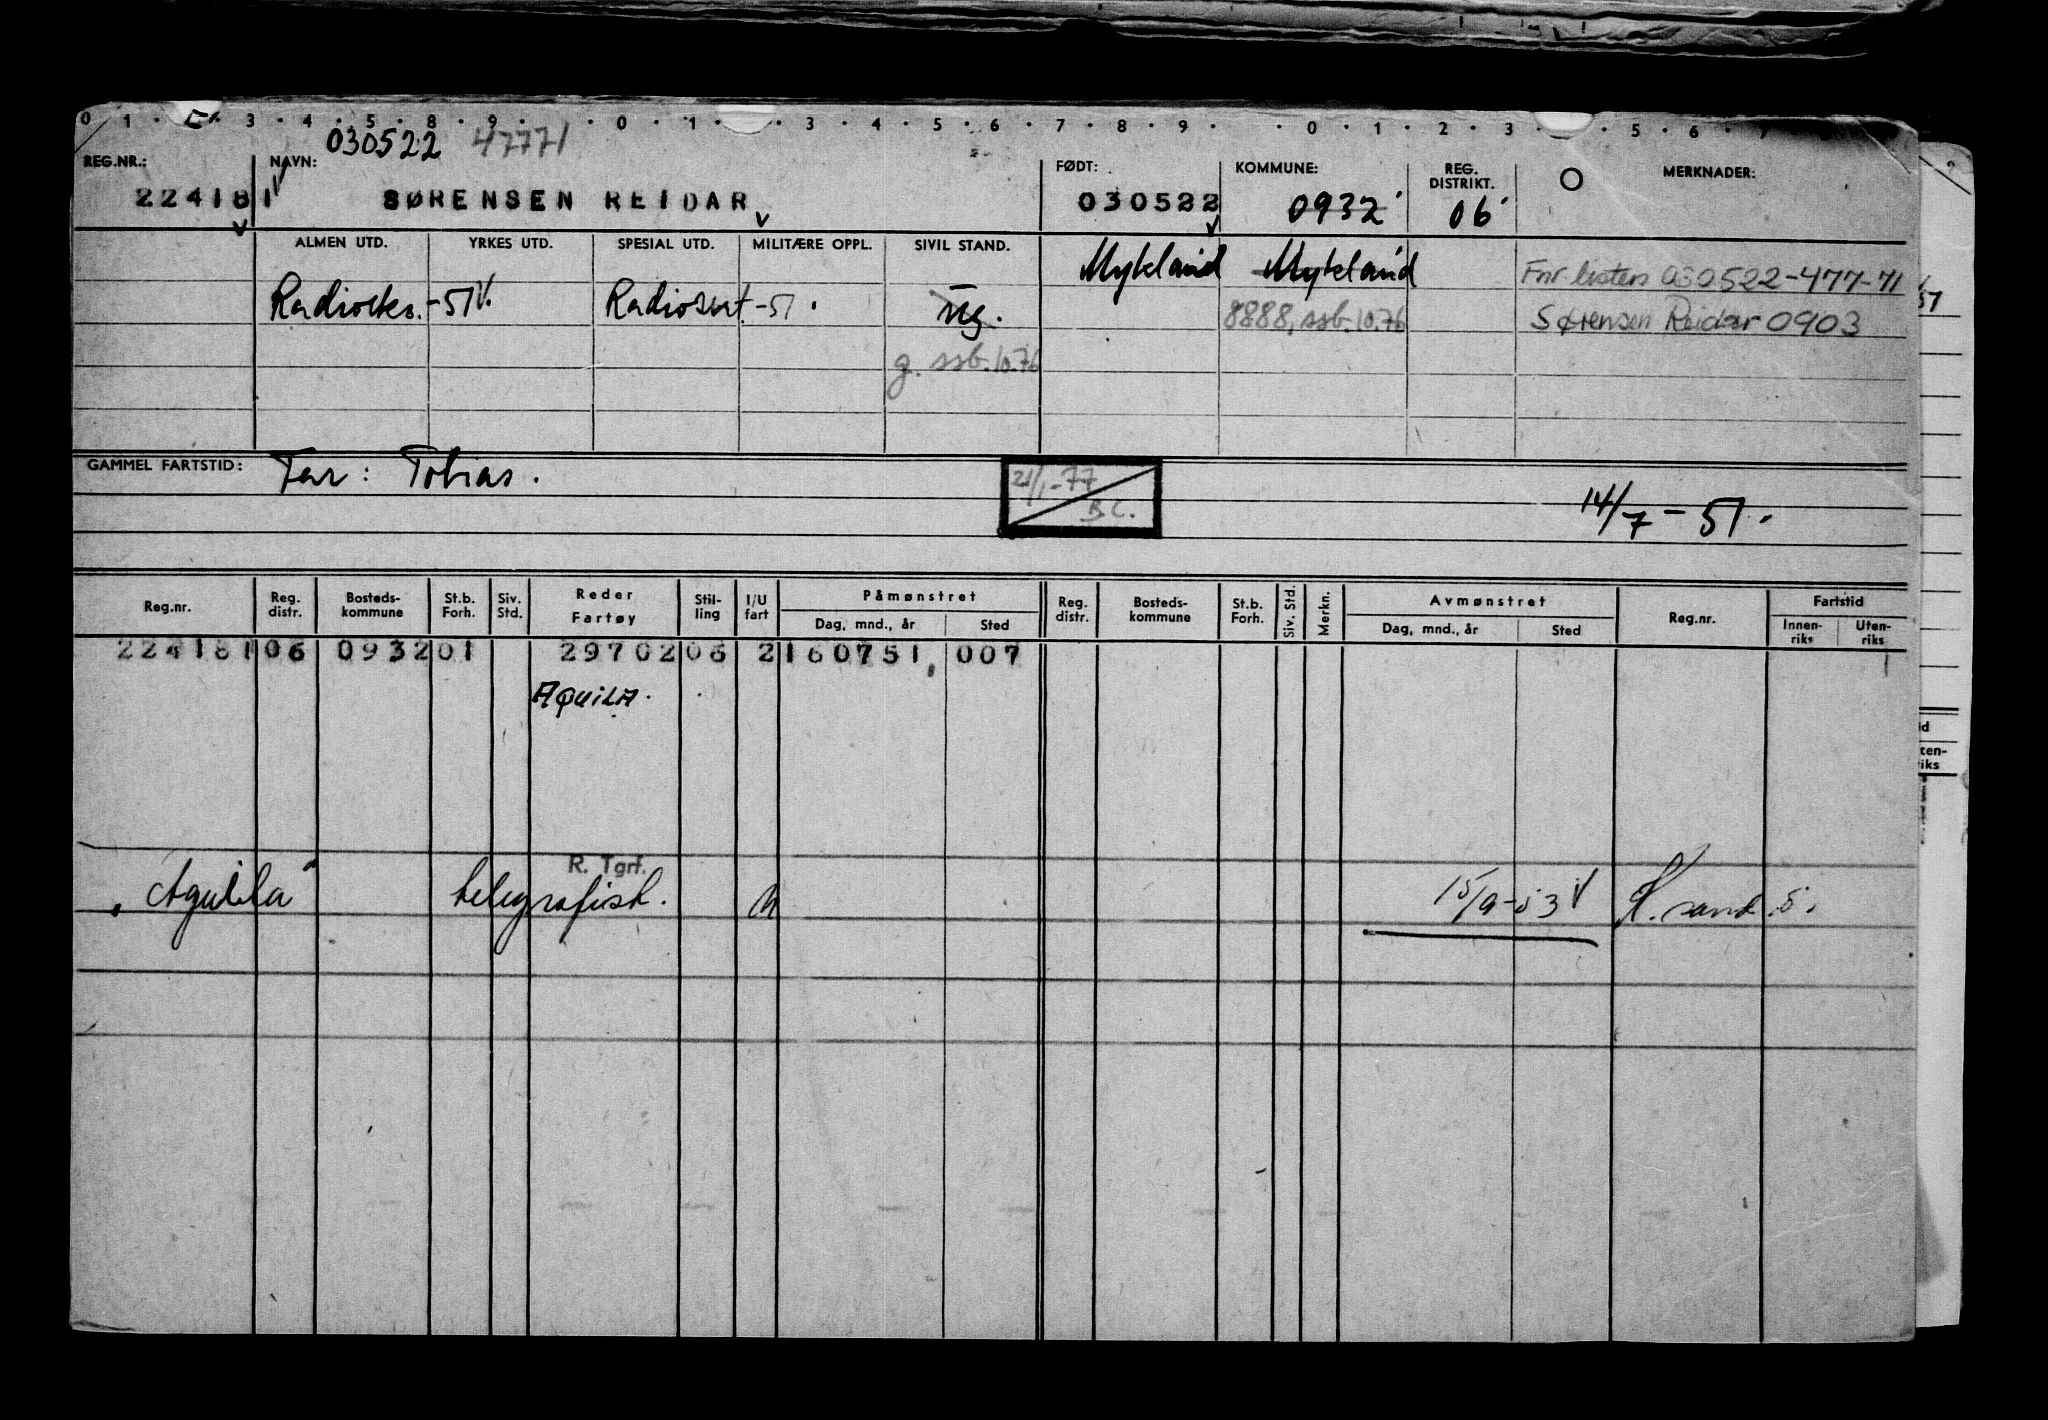 0 1 . . 3 . 4 . 5 . 8 . 9 . . . 0 . 1 . . 3 . 4 . 5 . 6 . 7 . 8 . 9 . . . 0 . 1 . 2 . 3 . . 5 . 6 . 7
030522 47771
REG.NR.: NAVN: FØDT: KOMMUNE: REG. DISTRIKT. MERKNADER:
224181 SØRENSEN REIDAR 030522 0932 06
ALMEN UTD. YRKES UTD. SPESIAL UTD. MILITÆRE OPPL. SIVIL STAND. Mykland Mykland
Fnr. listen 030522-477-71
Radioeks. -51 Radiosert -51. ug. 8888, ssb. 10.76 Sørensen Reidar 0903
g. ssb. 10.76
GAMMEL FARTSTID: Far: Tobias.
21/1-77
B.C.
14/7-51.
Reg.nr. Reg. distr. Bosteds- kommune St.b. Forh. Siv. Std. Reder Fartøy Stil- ling I/U fart Påmønstret Dag, mnd., år Sted Reg. distr. Bosteds- kommune St.b. Forh. Siv. Std. Merkn. Avmønstret Dag, mnd., år Sted Reg.nr. Fartstid Innen- riks Uten- riks
224181 06 0932 01 29702 06 2 160751 007
AQUILA.
R. Tgrf.
"Aquila" telegrafist. U 15/9-53 K.sand.S.